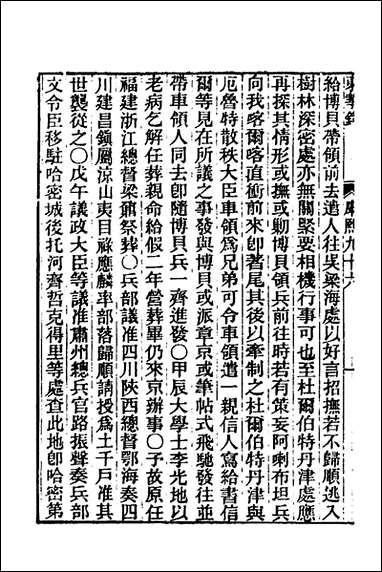 東華錄
康熙九十六
給博貝帶領前去遣人往吳梁海處以好言招撫若不歸順逃入
樹林深密處亦無關緊要相機行事可也至杜爾伯特丹津處應
再探其情形或撫或勦博貝領兵前往時若有策妄阿喇布坦兵
向我喀爾喀直衝前來即著尾其後以牽制之杜爾伯特丹津與
厄魯特散秩大臣車領爲兄弟可令車領遣一親信人寫給書信
爾等見在所議之事發與博貝或派章京或筆帖式飛馳發往並
帶車領人同去卽隨博貝兵一齊進發○甲辰大學士李光地以
老病乞解任葬親命給假二年營葬畢仍來京辦事○予故原任
福建浙江總督梁鼐祭葬○兵部議准四川陝西總督鄂海奏四
川建昌鎮屬涼山夷目祿應麟率部落歸順請授爲土千戶准其
世襲從之○戊午議政大臣等議准肅州總兵官路振聲奏兵部
文令臣移駐哈密城後托河齊哲克得里等處查此地卽哈密第